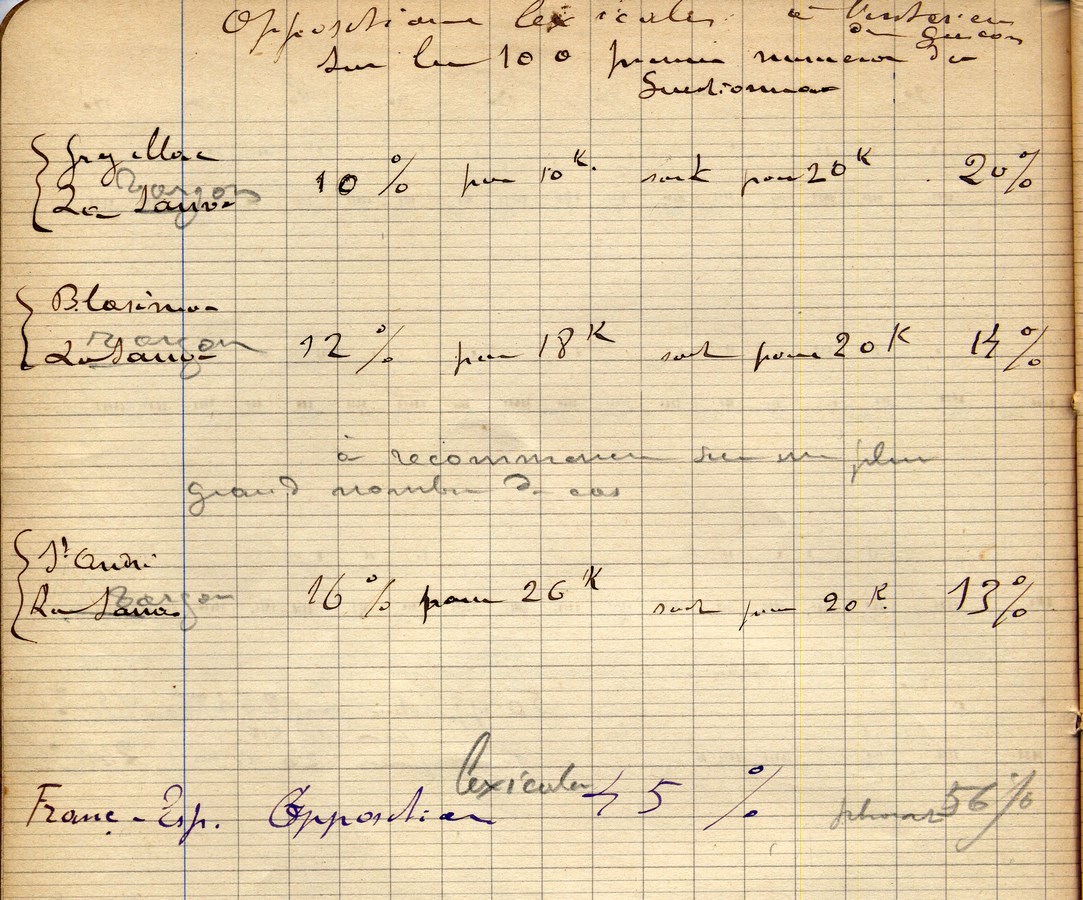 Oppositions lexicales à l'intérieur
du gascon
Sur les 100 premiers numéros du
Questionnaire
Grezillac
10 % pour 10 K. soit pour 20 K 20 %
Targon
La Sauve
Blasimon
12 % pour 18 K soit pour 20 K 14 %
Targon
La Sauve
à recommencer sur un plus
grand nombre de cas
St André
16 % pour 26 K soit pour 20 K. 13 %
Targon
La Sauve
Franç-Esp. Opposition lexicales 45 % 56 %